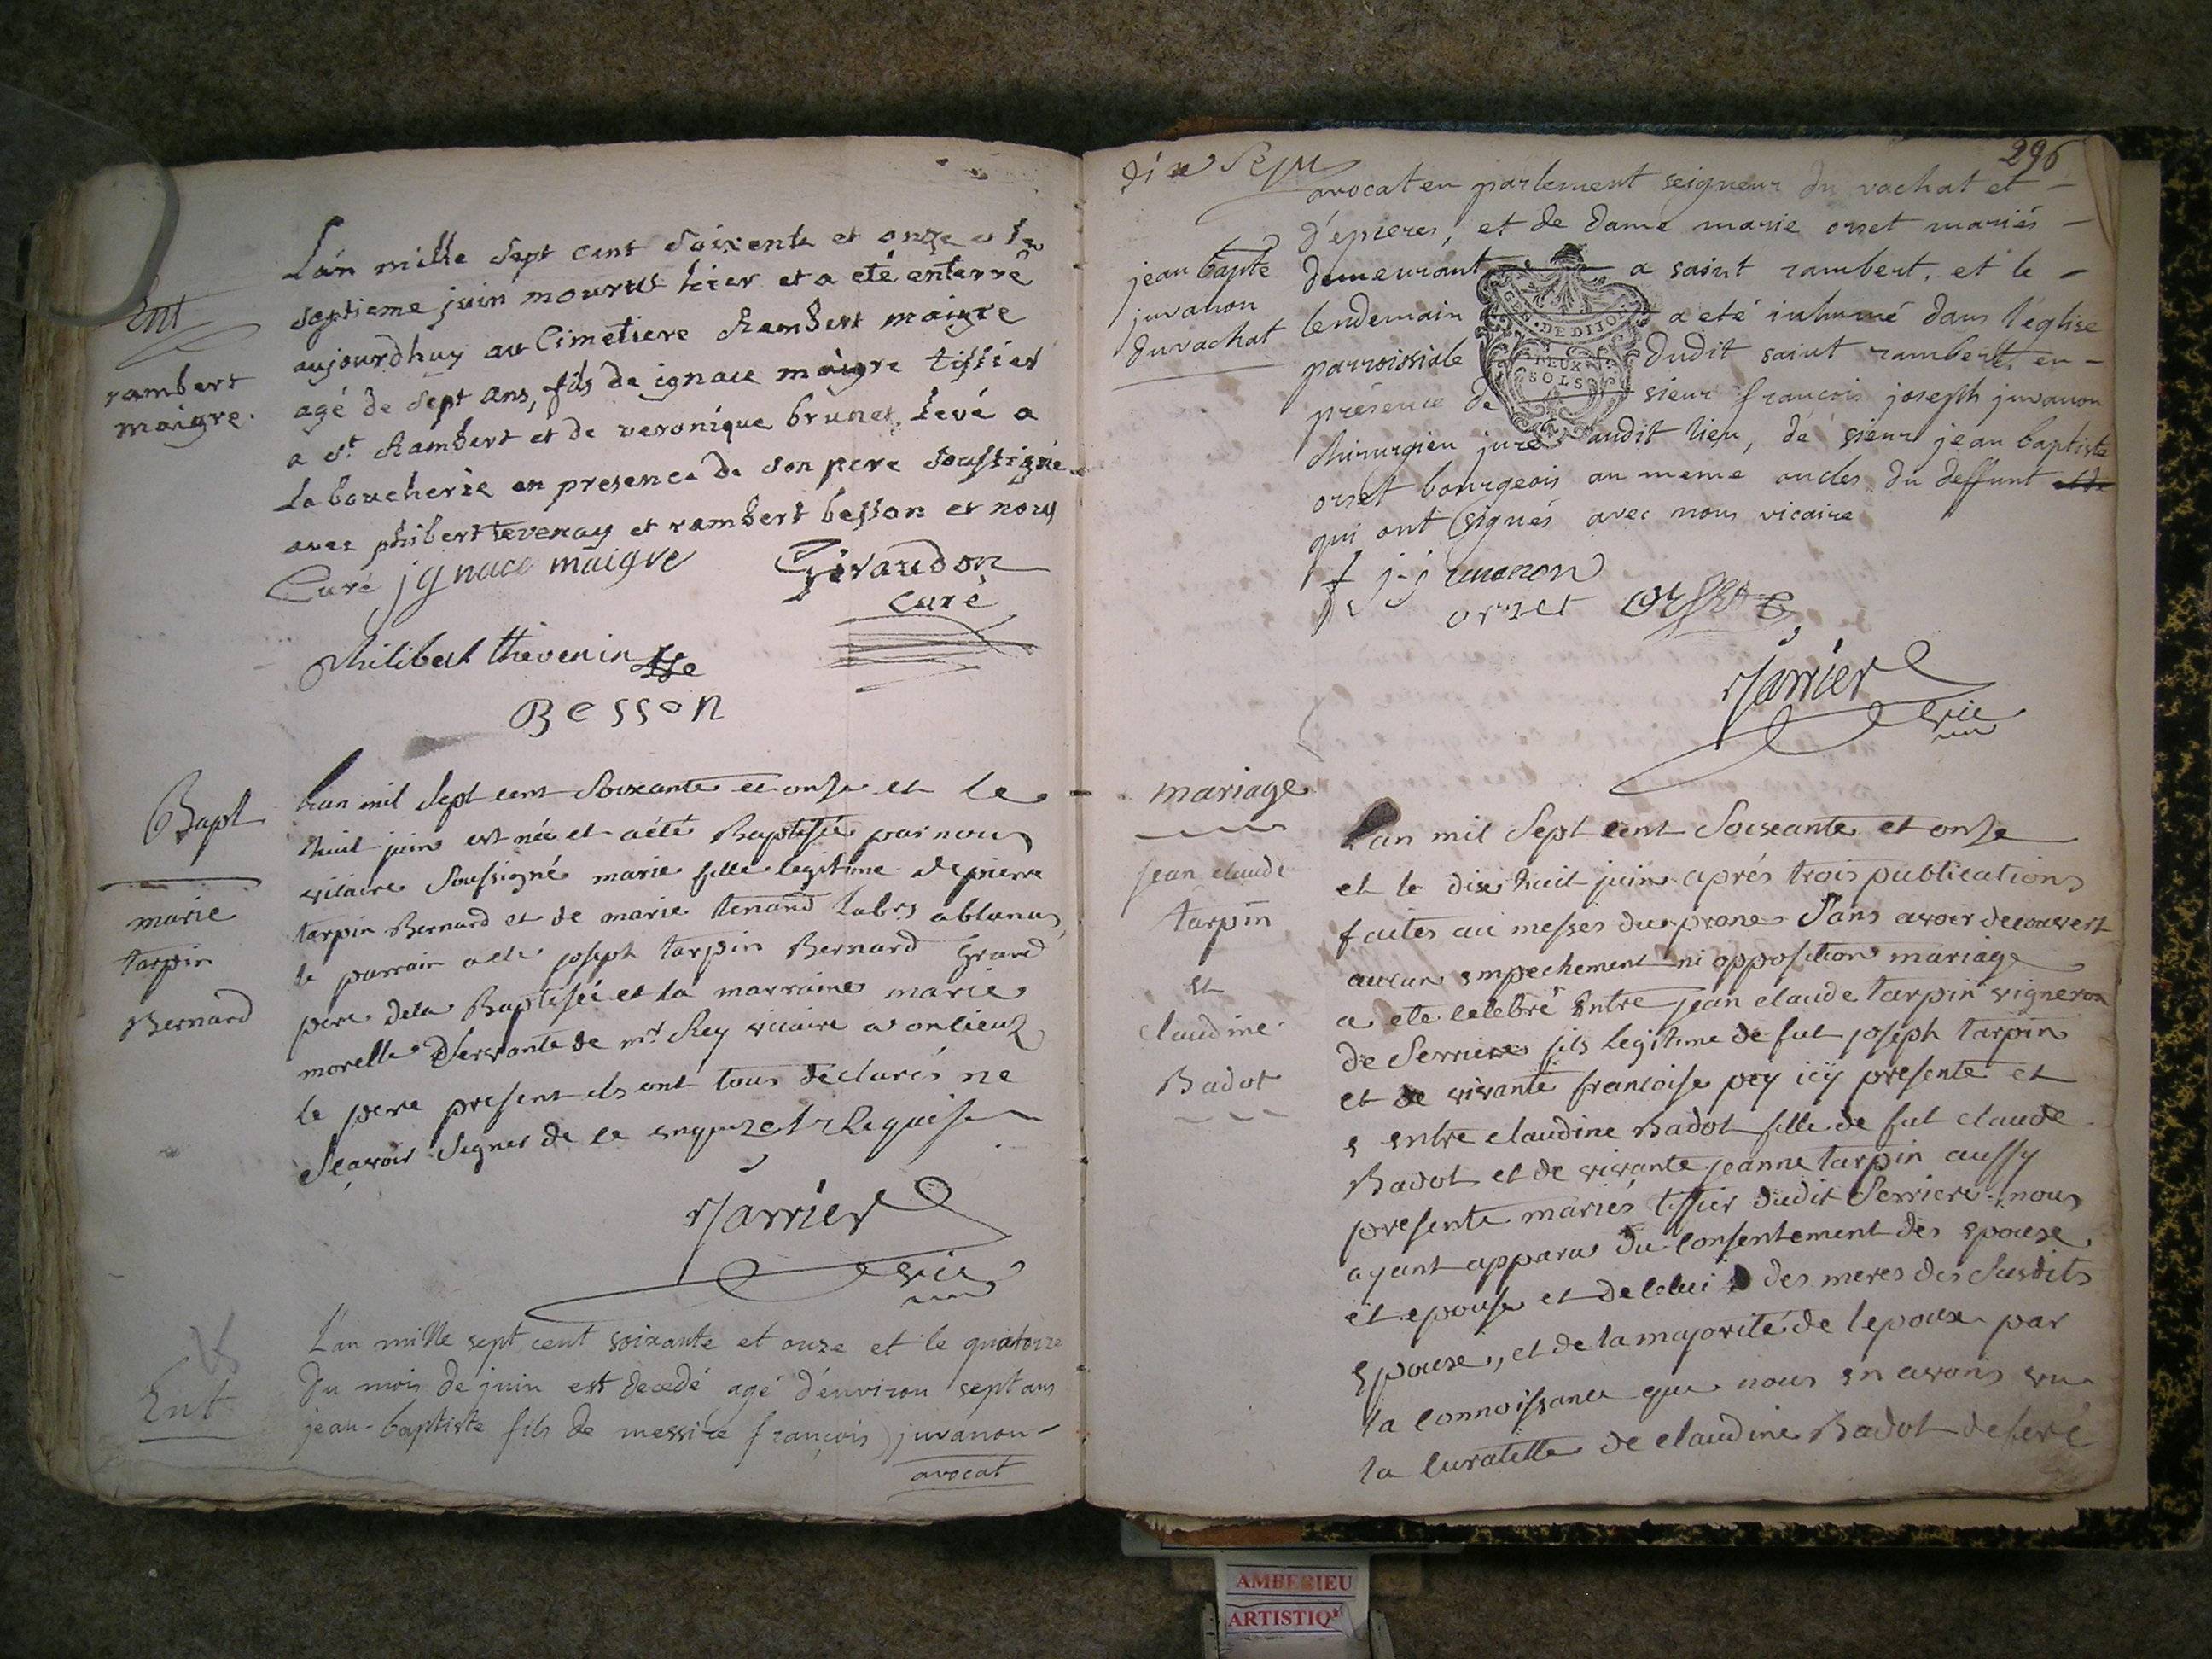 Ent
rambert
maigre.
L'an mille Sept cent Soixente et onze et le
Septieme juin mourut hier et a eté enterré
aujourdhuy au Cimetiere Rambert maigre
agé de Sept ans, fils de ignace maigre tissier
a St Rambert et de veronique brunet, levé a
la boucherie en presence de Son pere Soussigné
avec philbert tevenay et rambert besson et nous
Curé jgnace maigre Givaudon
curé
philibert thevenin
Besson
Bapt
marie
tarpin
Bernard
Lan mil Sept cent Soixante et onse et le
huit juin est née et a été Baptisée par nous
vicaire Soussigné marie fille legitime de pierre
tarpin Bernard et de marie tenand
le parrain a eté joseph tarpin Bernard Grand
pere dela Baptisée et la marraine marie
morelle Servante de mr Rey vicaire a onlieux
le pere present ils ont tous déclarés ne
Sçavoir Signer de ce enquis et Requis
Jarrier
vic
Ent
L'an mille sept cent soixante et onze et le quatorze
du mois de juin est decedé agé d'environ sept ans
jean-baptiste fils de messire françois juvanon-
avocat
296
dix Sept
jean bapte
juvanon
duvachat
avocat en parlement seigneur du vachat et -
d'epieres, et de dame marie orset mariés -
demeurant a saint rambert, et le -
lendemain a eté inhumé dans l'église
parroissiale dudit saint rambert, en -
présence de sieur françois joseph juvanon
chirurgien juré audit lieu, de sieur jean baptiste
orset bourgeois au meme oncles du deffunt
qui ont signés avec nous vicaire
GEN. DE DIJON
DEUX
SOLS
f j juvanon
orset
Jarrier
vic
mariage
jean claude
tarpin
et
claudine
Badot
Lan mil Sept cent Soixante et onse
et le dix huit juin aprés trois publications
faites au messes du prone Sans avoir decouvert
aucun empechement ni opposition mariage
a ete celebré Entre jean claude tarpin vigneron
de Serriere fils legitime de fut joseph tarpin
et de vivante francoise pey icÿ presente et
Entre claudine Badot fille de fut claude
Badot et de vivante jeanne tarpin aussy
presente mariés tissier dudit Serriere nous
ayant apparu du consentement des epoux
et epouse et de celui des meres des Susdits
epoux, et de la majorité de lepoux par
la connoissance que nous en avons vu
la curatelle de claudine Badot deferé
AMBERIEU
ARTISTIQ